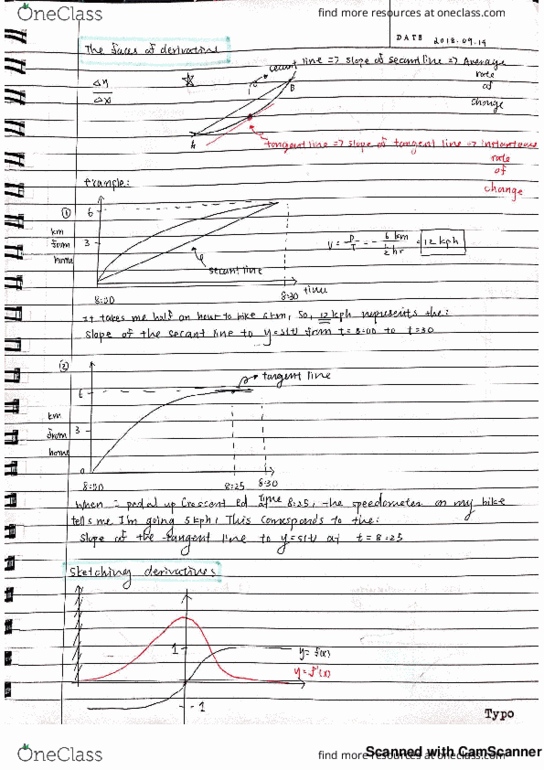 OneClass
find more resources at oneclass.com
DATE 2018.09.19
The faces of derivative
Δy
Δx
secant line => slope of secant line => Average
rate
of
change
B
A
tangent line => slope of tangent line => instantaneous
rate
of
change
Example:
①
6
km
from
home
3
secant line
8:00
8:30
time
V = D/T = 6 km / ½ hr = 12 kph
It takes me half an hour to bike 6km, So, 12 kph represents the:
Slope of the secant line to y=s(t) from t=8:00 to t=8:30
②
tangent line
6
km
from
home
3
0
8:00
8:25
8:30
time
When I pedal up Crescent Rd at 8:25, the speedometer on my bike
tells me I'm going 5kph. This corresponds to the:
Slope of the tangent line to y=s(t) at t=8:25
Sketching derivatives
1
y=f(x)
y=f'(x)
-1
Typo
OneClass
find more resources at oneclass.com
Scanned with CamScanner